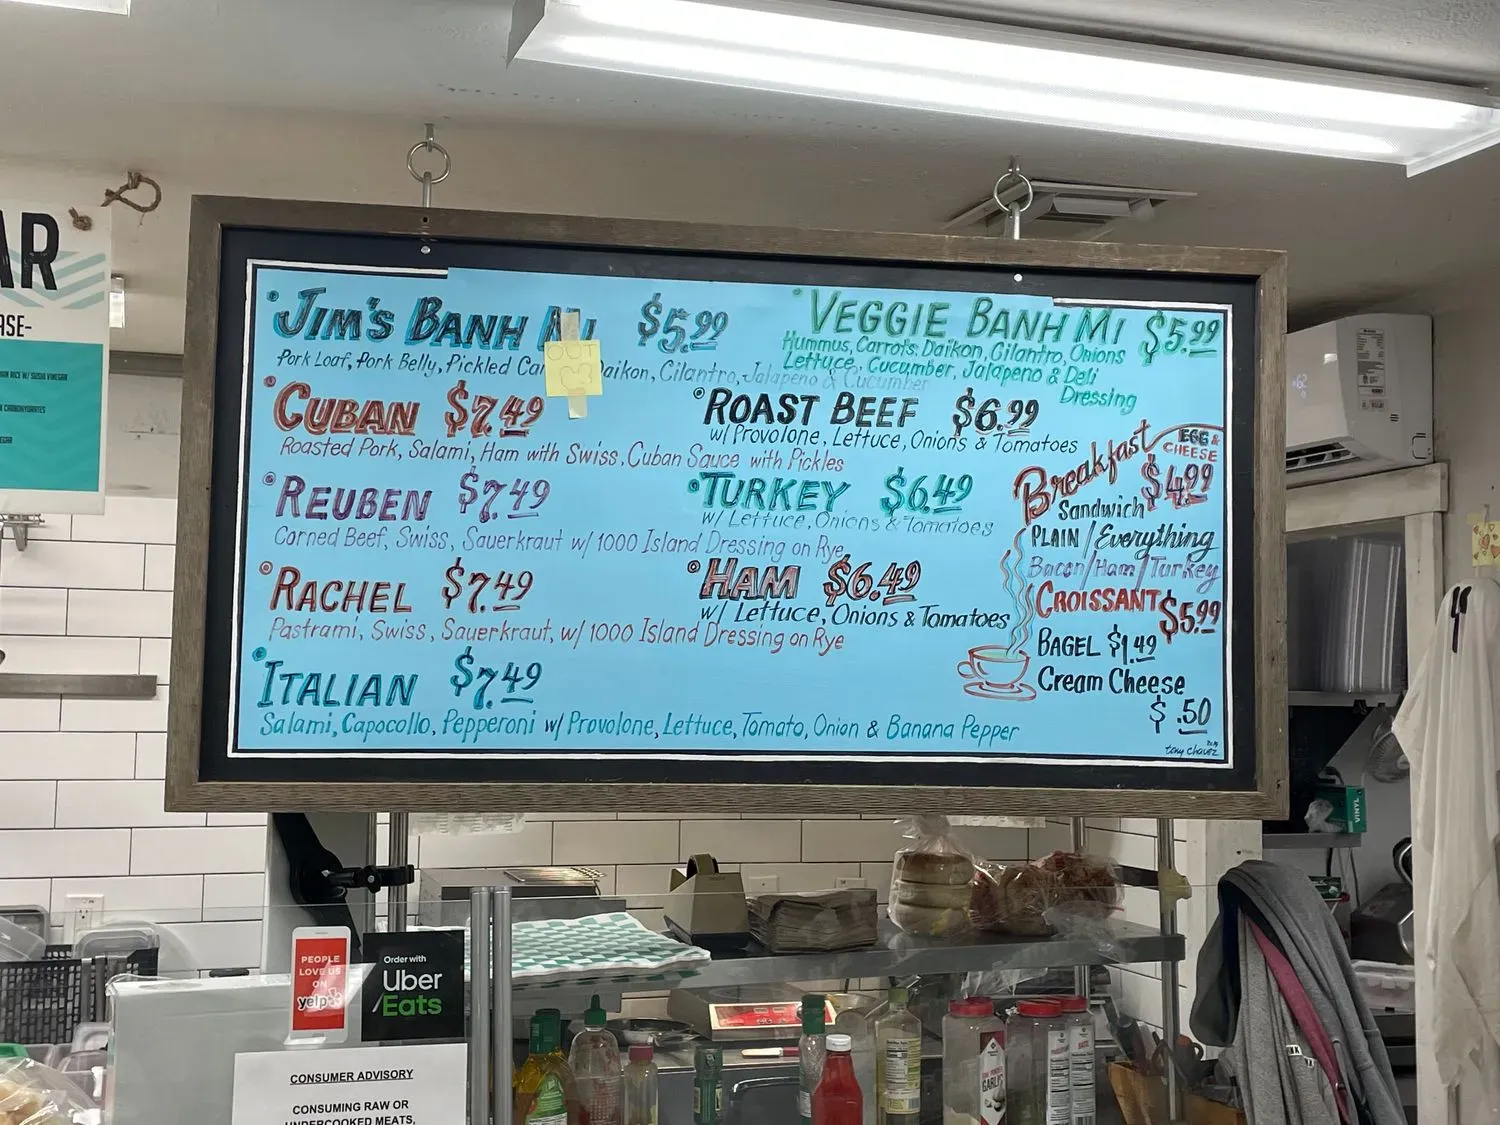 AR
ASE-
JIM'S BANH MI $5.99
OUT
Pork Loaf, Pork Belly, Pickled Daikon, Cilantro, Jalapeno & Cucumber
CUBAN $7.49
Roasted Pork, Salami, Ham with Swiss, Cuban Sauce with Pickles
REUBEN $7.49
Corned Beef, Swiss, Sauerkraut w/ 1000 Island Dressing on Rye
RACHEL $7.49
Pastrami, Swiss, Sauerkraut, w/ 1000 Island Dressing on Rye
ITALIAN $7.49
Salami, Capocollo, Pepperoni w/ Provolone, Lettuce, Tomato, Onion & Banana Pepper
VEGGIE BANH MI $5.99
Hummus, Carrots, Daikon, Cilantro, Onions
Lettuce, Cucumber, Jalapeno & Deli
Dressing
ROAST BEEF $6.99
w/ Provolone, Lettuce, Onions & Tomatoes
TURKEY $6.49
w/ Lettuce, Onions & Tomatoes
HAM $6.49
w/ Lettuce, Onions & Tomatoes
Breakfast
EGG &
CHEESE
$4.99
Sandwich
PLAIN / Everything
Bacon/Ham/Turkey
CROISSANT $5.99
BAGEL $1.49
Cream Cheese
$ .50
tony chavez
VINYL
PEOPLE
LOVE US
ON
yelp
Order with
Uber
Eats
CONSUMER ADVISORY
CONSUMING RAW OR
UNDERCOOKED MEATS,
GARLIC